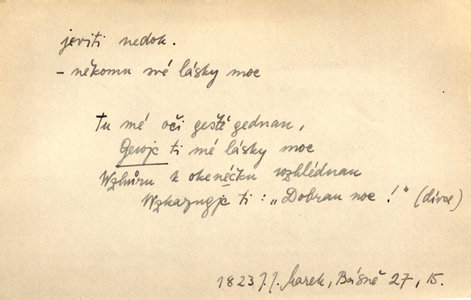 jeviti nedok.
– někomu své lásky moc
Tu mé oči gestě gednau,
Gewj ti mé lásky moc
Wzhůru k okenéčku wzhlédnau
Wzkazugje ti: „Dobrau noc!“ (dívce)
1823 J. J. Marek, Básně 27, 15.